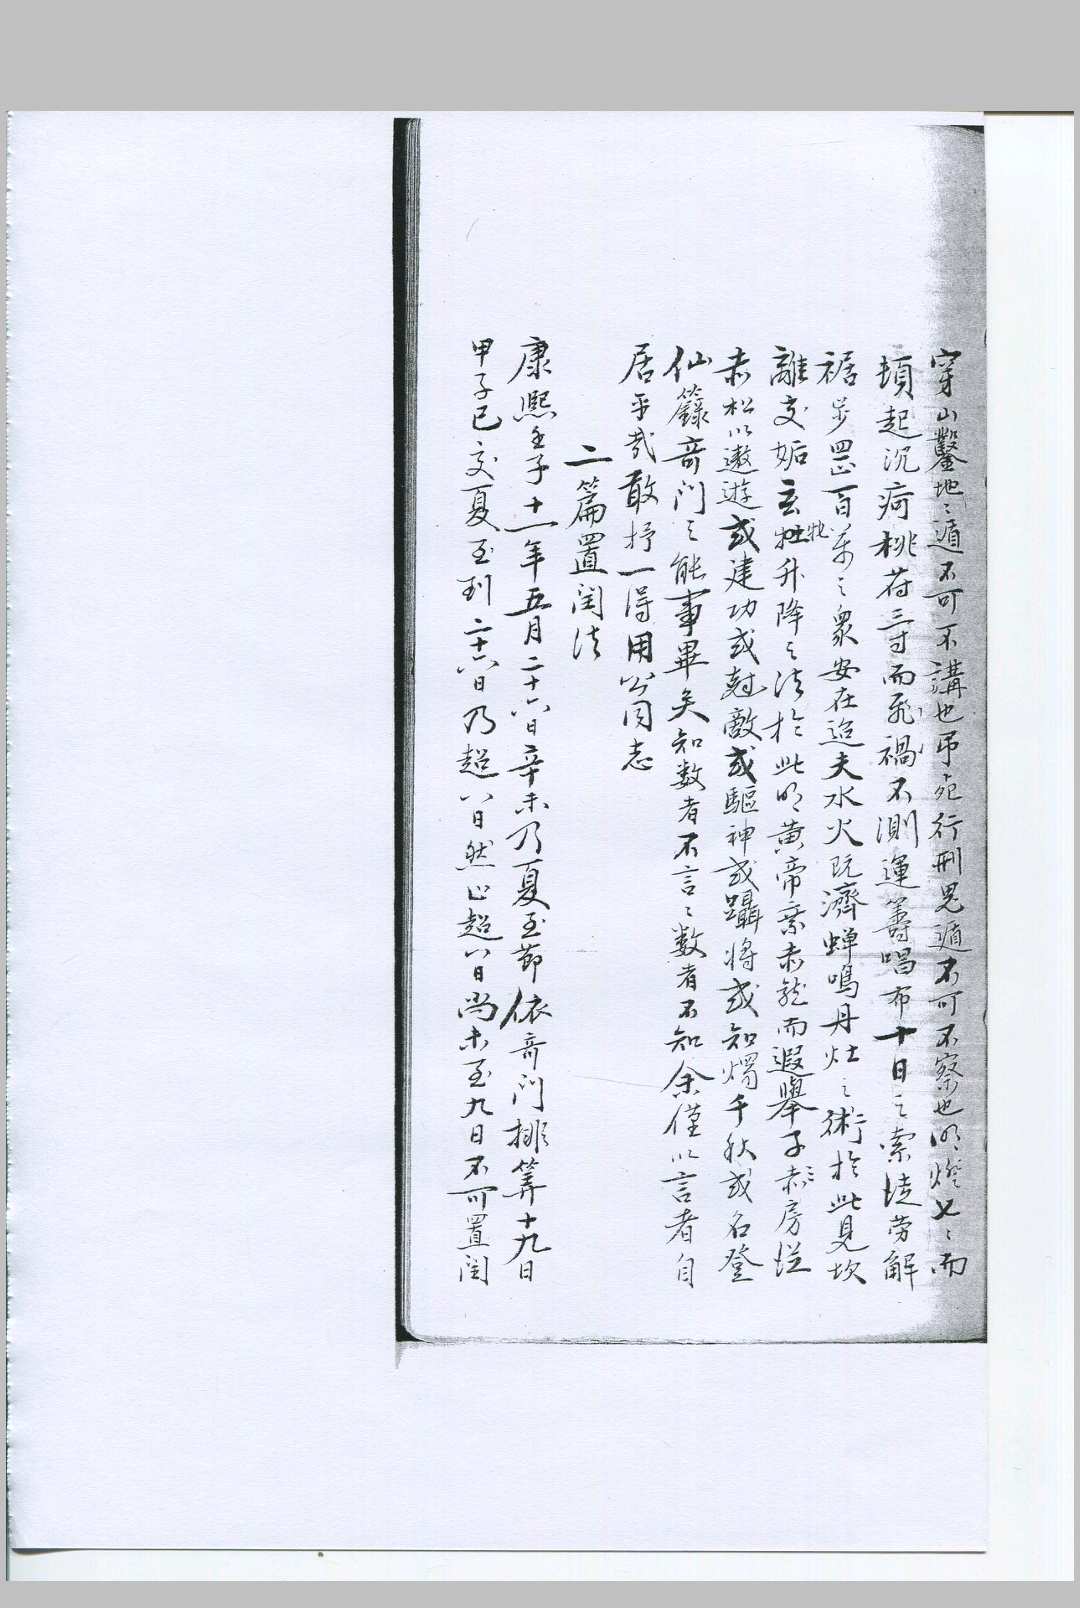 穿山鑿地〻遁不可不講也吊死行刑鬼遁不可不察也明燈七〻而
頓起沉疴桃符三寸而飛禍不測運籌唱布十日之索徒勞解
裾步罡百萬之衆安在迨夫水火既濟蟬鳴丹灶之術於此見坎
離交姤玄牝升降之法於此明黄帝乘赤龍而遐舉子房從
赤松以遨遊或建功或尅敵或驅神或躡將或知燭千秋或名登
仙籙奇门之能事畢矣知数者不言〻数者不知余僅以言者自
居乎哉敢抒一得用公同志
二篇置闰法
康熙壬子十一年五月二十六日辛未乃夏至節依奇门排筭十九日
甲子已交夏至到二十六日乃超八日然止超八日尚未至九日不可置闰